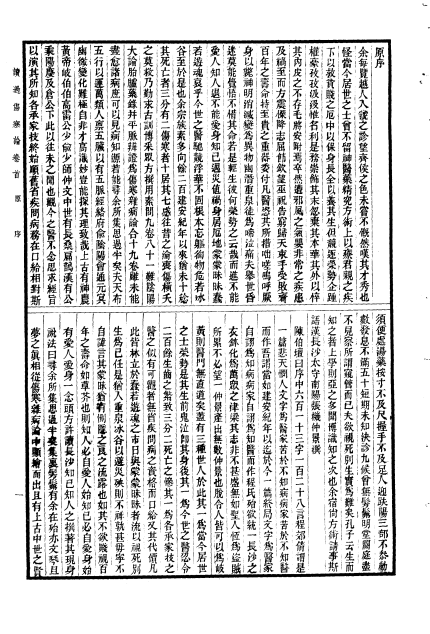 原序
余每覽越人入虢之診望齊侯之色未嘗不慨然嘆其才秀也
怪當今居世之士曾不留神醫藥精究方術上以療君親之疾
下以救貧賤之厄中以保身長全以養其生但競逐榮勢企踵
權豪孜孜汲汲惟名利是務崇飾其末忽棄其本華其外以悴
其內皮之不存毛將安附焉卒然遭邪風之氣嬰非常之疾患
及禍至而方震慄降志屈節欽望巫祝告窮歸天束手受敗賫
百年之壽命持至貴之重器委付凡醫恣其所措咄嗟嗚呼厥
身以斃神明消滅變為異物幽潛重泉徒為啼泣痛夫舉世昏
迷莫能覺悟不惜其命若是輕生彼何榮勢之云哉而進不能
愛人知人退不能愛身知己遇災值禍身居厄地蒙蒙昧昧蠢
若遊魂哀乎今世之醫馳競浮華不固根本忘軀徇物危若冰
谷至於是也余宗族素多向餘二百建安紀年以來猶未十稔
其死亡者三分有二傷寒者十居其七感往昔之淪喪傷橫夭
之莫救乃勤求古訓博采眾方撰用素問九卷八十一難陰陽
大論胎臚藥錄并平脈辨證為傷寒雜病論合十六卷雖未能
盡愈諸病庶可以見病知源若能尋余所集思過半矣夫天布
五行以運萬類人稟五常以有五臟經絡府俞陰陽會通元冥
幽微變化難極自非才高識妙豈能探其理致哉上古有神農
黃帝岐伯伯高雷公少俞少師仲文中世有長桑扁鵲漢有公
乘陽慶及倉公下此以往未之聞也觀今之醫不念思求經旨
以演其所知各承家技終始順舊省疾問病務在口給相對斯
須便處湯藥按寸不及尺握手不及足人迎趺陽三部不參動
數發息不滿五十短期未知決診九候曾無髣髴明堂闕庭盡
不見察所謂窺管而已夫欲視死別生實為難矣孔子云生而
知之者上學則亞之多聞博識知之次也余宿尚方術請事斯
語漢長沙太守南陽張機仲景撰
陳伯壇曰序中六百一十三字一百二十八言程郊倩謂是
一篇悲天憫人文字為醫家苦於不知病病家苦於不知醫
而作吾謂當如建安紀年以迄於今一篇終局文字為醫家
自謂為知病病家自謂為知醫而作程氏殆欲執一長沙之
所累不必望一仲景產出無數仲景也脫令人皆可以為岐
黃則醫門無直道矣蓋有三種世人於此其一為當今居世
之士榮勢是其生前鬼泣即其身後其一為今世之醫忍令
二百餘生齒之繁致三分二死亡之慘其一為各承家技之
醫之似有可觀者無非疾問病之資格而口給又其代價凡
此皆林立於蠢若遊魂之市日與蒙蒙昧昧者流以視死別
生為己任是猶入重泉冰谷以還見殃則不神孰甚毋寧不
夢之真相從傷寒雜病論中顯繪而出且有上古中世之賢
讀過傷寒論卷首 原序
一